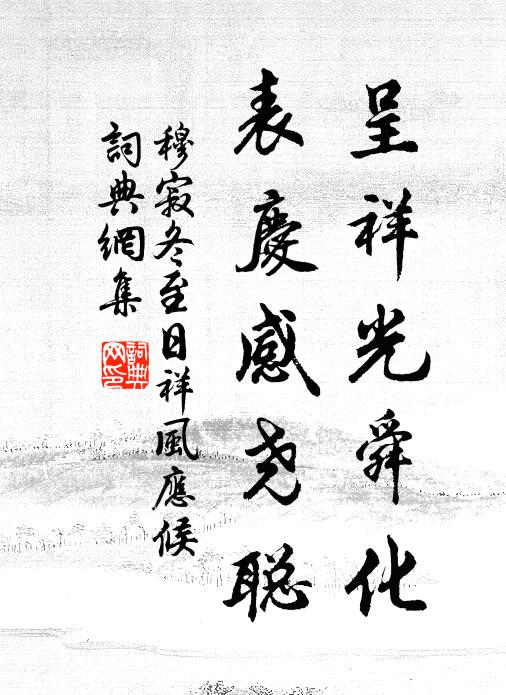 呈祥光舜化
表慶感尧聪
穆寂冬至日祥風應候
詞典網集
詞典网印